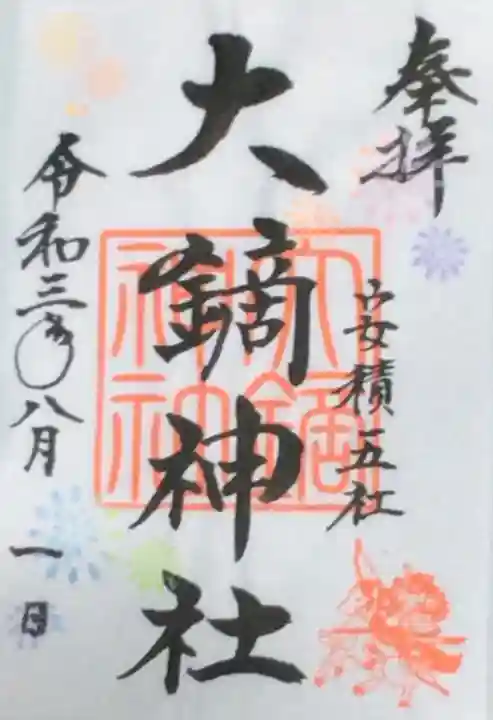 奉拝
安積一五社
大鏑神社
大鏑神社
令和三年八月一日